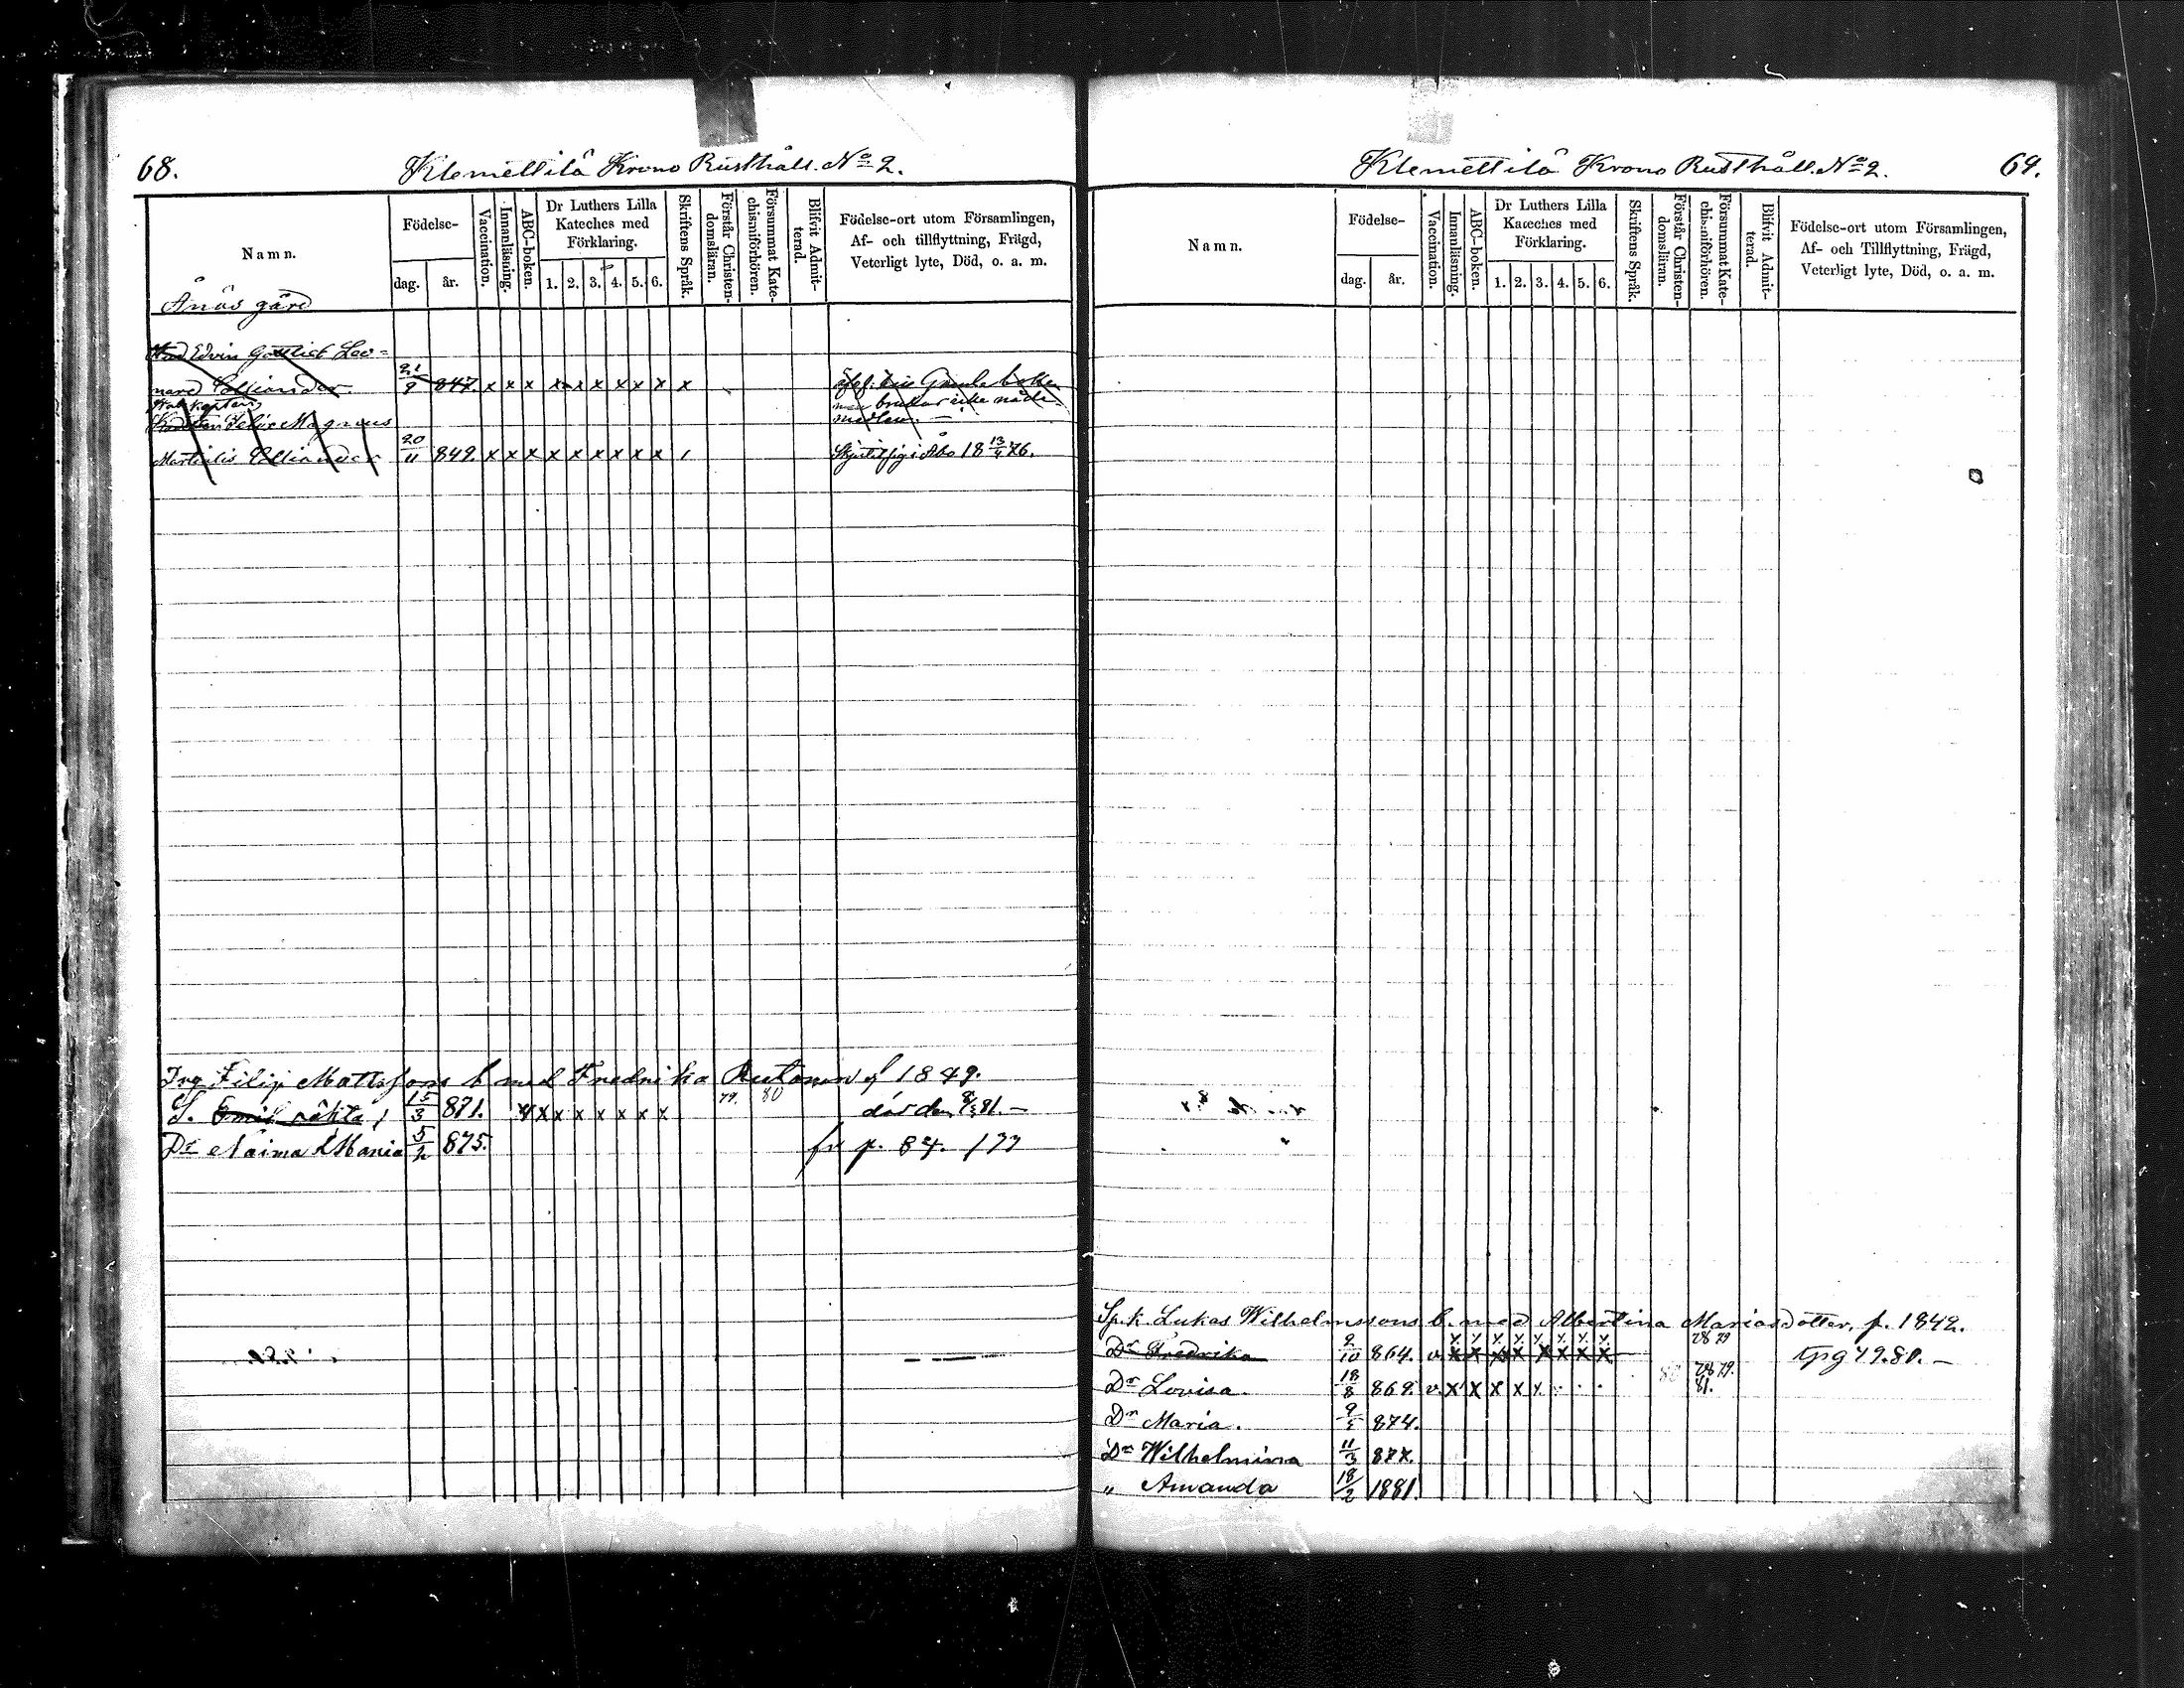 68.
Klemettilä Krono Rusthåll. No 2.
Namn.
Födelse-
dag.
år.
Vaccination.
Innanläsning.
ABC-boken.
Dr Luthers Lilla
Kateches med
Förklaring.
1. 2. 3. 4. 5. 6.
Skriftens Språk.
Förstår Christen-
domsläran.
Försummat Kate-
chismiförhören.
Blifvit Admit-
terad.
Födelse-ort utom Församlingen,
Af- och tillflyttning, Frägd,
Veterligt lyte, Död, o. a. m.
Ånäs gård
Edvin Gottlieb Leo-
nard Colliander 21/9 847. x x x x x x x x x x
Felix Magnus
Martialis Colliander 20/11 842. x x x x x x x x x / i Åbo 18 13/4 76.
Filip Mattssons b med Fredrika 1849.
S. Emil 15/3 871. x x x x x x x 79. 80 död den 8/3 81.
Dr Naima Maria 5/2 875. fr p. 84. /77
Klemettilä Krono Rusthåll. No 2.
69.
Namn.
Födelse-
dag.
år.
Vaccination.
Innanläsning.
ABC-boken.
Dr Luthers Lilla
Kateches med
Förklaring.
1. 2. 3. 4. 5. 6.
Skriftens Språk.
Förstår Christen-
domsläran.
Försummat Kate-
chismiförhören.
Blifvit Admit-
terad.
Födelse-ort utom Församlingen,
Af- och Tillflyttning, Frägd,
Veterligt lyte, Död, o. a. m.
Sp.k. Lukas Wilhelmssons b. med Albertina Mariasdotter, f. 1842.
Dr Fredrika 9/10 864. v. x x x x x x x x 78 79 79.81.
Dr Lovisa. 18/8 869. v. x x x x x 78 79.
81.
Dr Maria. 874.
Dr Wilhelmina 11/3 877.
„ Amanda 18/2 1881.